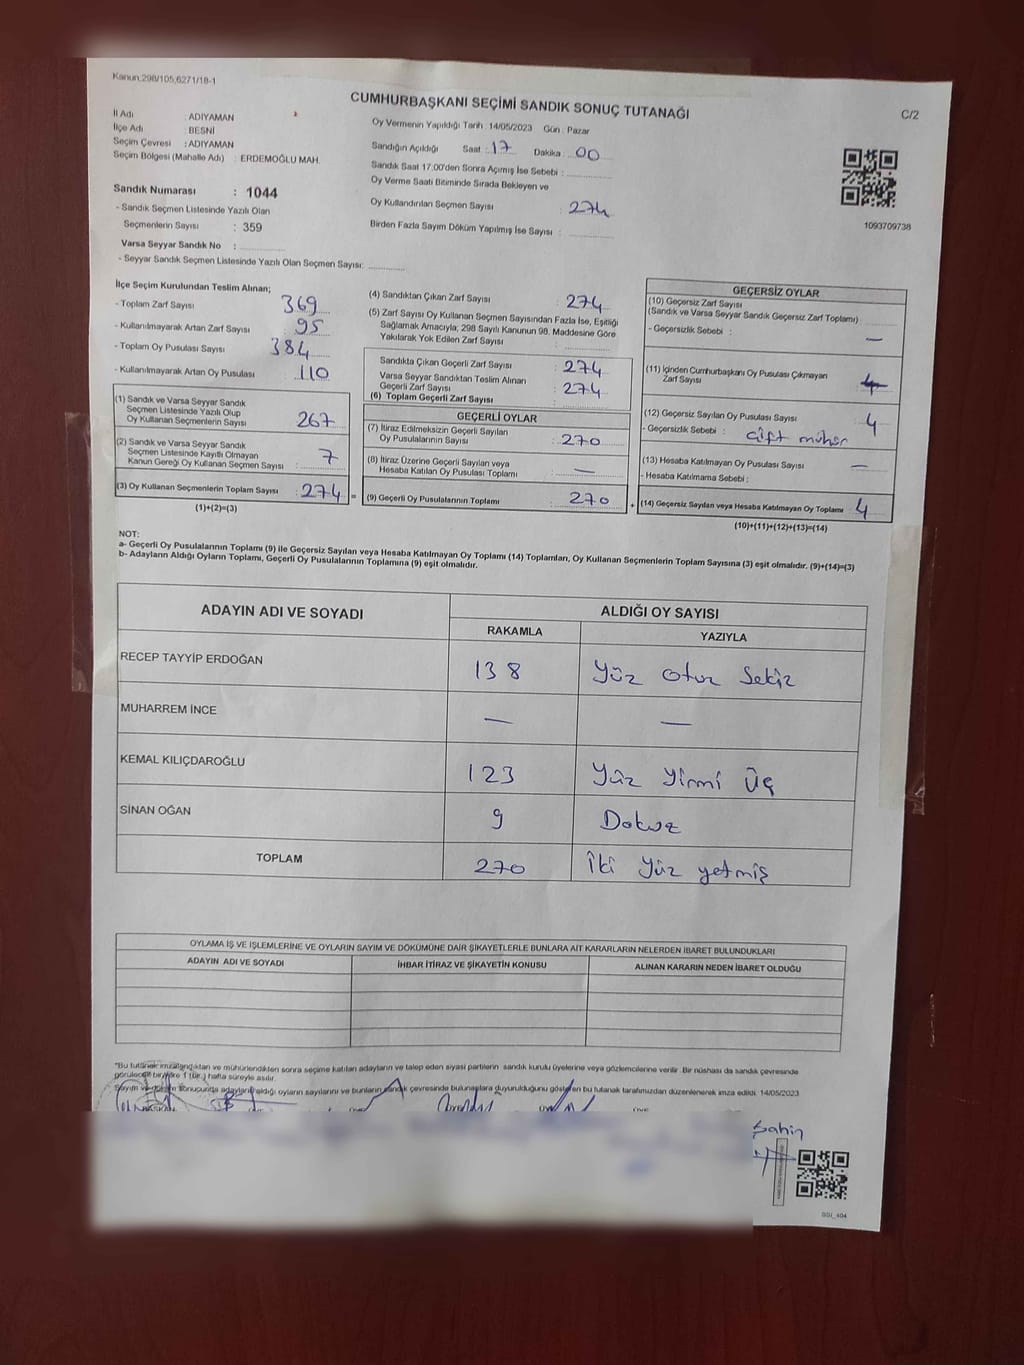 Kanun:298/105,6271/18-1
CUMHURBAŞKANI SEÇİMİ SANDIK SONUÇ TUTANAĞI
C/2
İl Adı : ADIYAMAN
İlçe Adı : BESNİ
Seçim Çevresi : ADIYAMAN
Seçim Bölgesi (Mahalle Adı) : ERDEMOĞLU MAH.
Sandık Numarası : 1044
- Sandık Seçmen Listesinde Yazılı Olan
Seçmenlerin Sayısı : 359
Varsa Seyyar Sandık No :
- Seyyar Sandık Seçmen Listesinde Yazılı Olan Seçmen Sayısı:
Oy Vermenin Yapıldığı Tarih :14/05/2023 Gün : Pazar
Sandığın Açıldığı Saat : 17 Dakika : 00
Sandık Saat 17:00'den Sonra Açımış İse Sebebi :
Oy Verme Saati Bitiminde Sırada Bekleyen ve
Oy Kullandırılan Seçmen Sayısı : 274
Birden Fazla Sayım Döküm Yapılmış İse Sayısı :
1093709738
İlçe Seçim Kurulundan Teslim Alınan;
- Toplam Zarf Sayısı : 369
- Kullanılmayarak Artan Zarf Sayısı : 95
- Toplam Oy Pusulası Sayısı : 384
- Kullanılmayarak Artan Oy Pusulası : 110
(1) Sandık ve Varsa Seyyar Sandık
Seçmen Listesinde Yazılı Olup
Oy Kullanan Seçmenlerin Sayısı : 267
(2) Sandık ve Varsa Seyyar Sandık
Seçmen Listesinde Kayıtlı Olmayan
Kanun Gereği Oy Kullanan Seçmen Sayısı : 7
(3) Oy Kullanan Seçmenlerin Toplam Sayısı : 274 =
(1)+(2)=(3)
(4) Sandıktan Çıkan Zarf Sayısı : 274
(5) Zarf Sayısı Oy Kullanan Seçmen Sayısından Fazla İse, Eşitliği
Sağlamak Amacıyla; 298 Sayılı Kanunun 98. Maddesine Göre
Yakılarak Yok Edilen Zarf Sayısı :
Sandıkta Çıkan Geçerli Zarf Sayısı : 274
Varsa Seyyar Sandıktan Teslim Alınan
Geçerli Zarf Sayısı : 274
(6) Toplam Geçerli Zarf Sayısı
GEÇERLİ OYLAR
(7) İtiraz Edilmeksizin Geçerli Sayılan
Oy Pusulalarının Sayısı : 270
(8) İtiraz Üzerine Geçerli Sayılan veya
Hesaba Katılan Oy Pusulası Toplamı : —
(9) Geçerli Oy Pusulalarının Toplamı : 270 +
GEÇERSİZ OYLAR
(10) Geçersiz Zarf Sayısı
(Sandık ve Varsa Seyyar Sandık Geçersiz Zarf Toplamı)
- Geçersizlik Sebebi : —
(11) İçinden Cumhurbaşkanı Oy Pusulası Çıkmayan
Zarf Sayısı
(12) Geçersiz Sayılan Oy Pusulası Sayısı : 4
- Geçersizlik Sebebi : çift mühür
(13) Hesaba Katılmayan Oy Pusulası Sayısı : —
- Hesaba Katılmama Sebebi :
(14) Geçersiz Sayılan veya Hesaba Katılmayan Oy Toplamı : 4
(10)+(11)+(12)+(13)=(14)
NOT:
a- Geçerli Oy Pusulalarının Toplamı (9) ile Geçersiz Sayılan veya Hesaba Katılmayan Oy Toplamı (14) Toplamları, Oy Kullanan Seçmenlerin Toplam Sayısına (3) eşit olmalıdır. (9)+(14)=(3)
b- Adayların Aldığı Oyların Toplamı, Geçerli Oy Pusulalarının Toplamına (9) eşit olmalıdır.
ADAYIN ADI VE SOYADI ALDIĞI OY SAYISI
RAKAMLA YAZIYLA
RECEP TAYYİP ERDOĞAN 138 Yüz otuz Sekiz
MUHARREM İNCE — —
KEMAL KILIÇDAROĞLU 123 Yüz Yirmi Üç
SİNAN OĞAN 9 Dokuz
TOPLAM 270 İki Yüz yetmiş
OYLAMA İŞ VE İŞLEMLERİNE VE OYLARIN SAYIM VE DÖKÜMÜNE DAİR ŞİKAYETLERLE BUNLARA AİT KARARLARIN NELERDEN İBARET BULUNDUKLARI
ADAYIN ADI VE SOYADI İHBAR İTİRAZ VE ŞİKAYETİN KONUSU ALINAN KARARIN NEDEN İBARET OLDUĞU
"Bu tutanak imzalandıktan ve mühürlendikten sonra seçime katılan adayların ve talep eden siyasi partilerin sandık kurulu üyelerine veya gözlemcilerine verilir. Bir nüshası da sandık çevresinde
görülecek bir yere 1 (bir) hafta süreyle asılır.
Sayım ve döküm sonucunda adayların aldığı oyların sayılarını ve bunların sandık çevresinde bulunanlara duyurulduğunu gösteren bu tutanak tarafımızdan düzenlenerek imza edildi. 14/05/2023
BAŞKAN
Şahin
SSİ_404